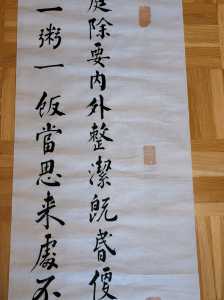 庭除要内外整潔既昏便
一粥一飯當思来處不